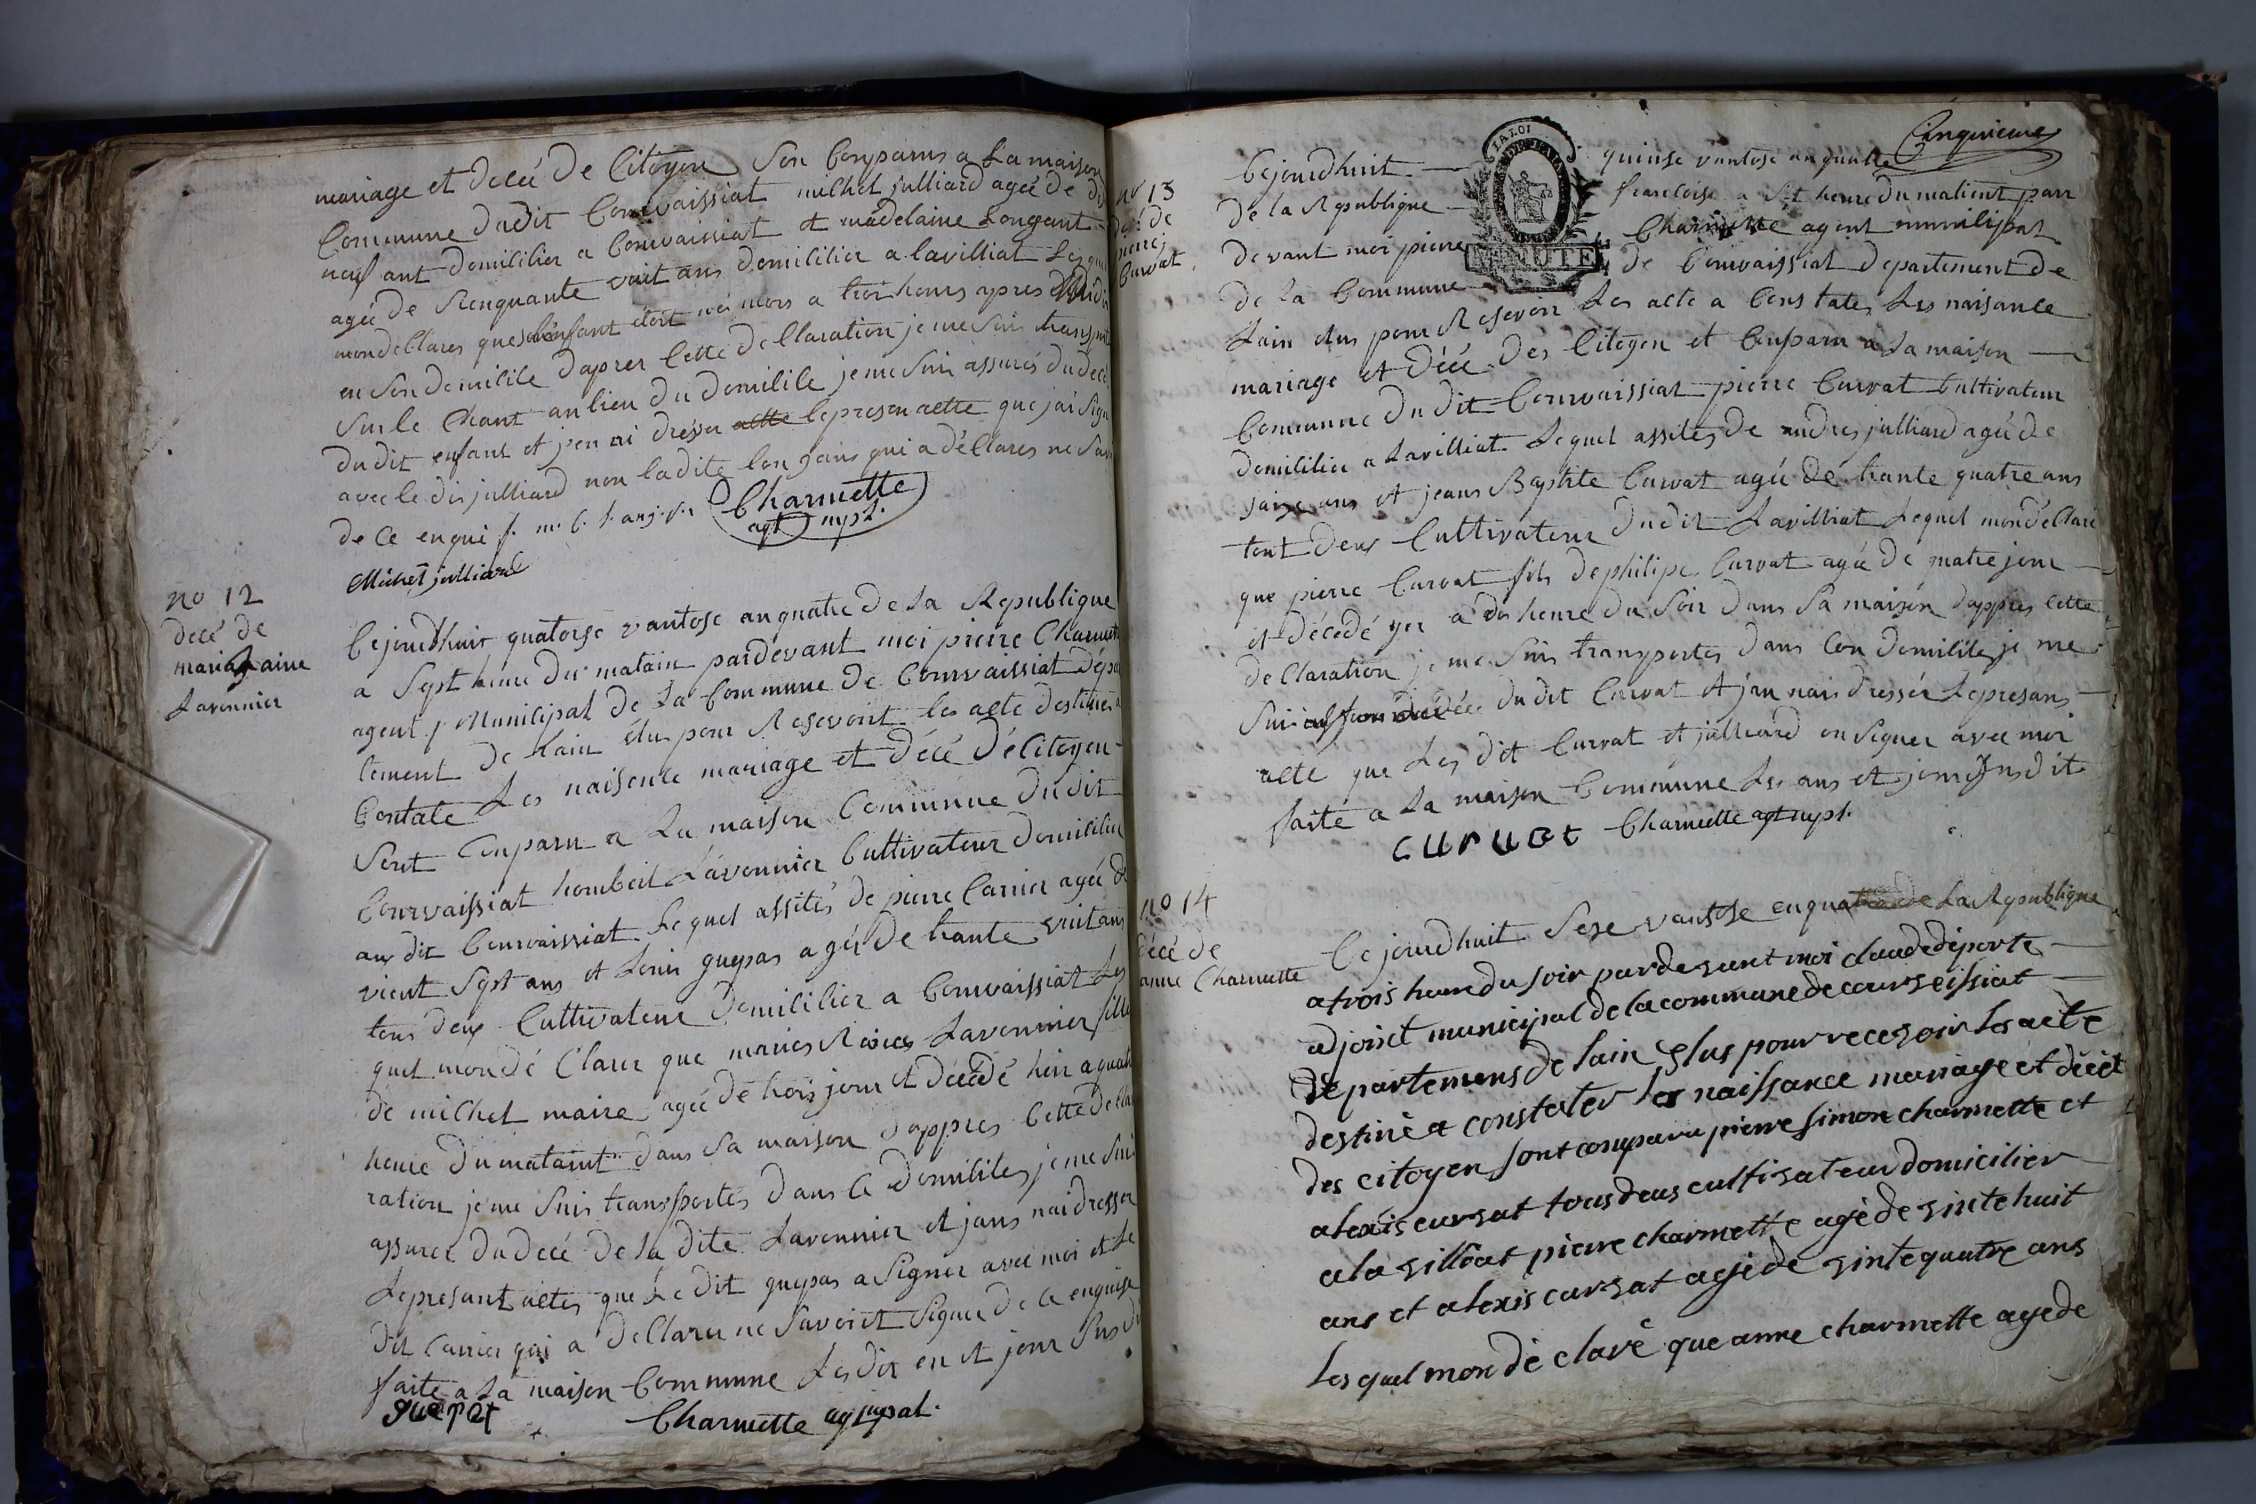 mariage et decé De Citoyen Son Conparus a La maison
Commune Dudit Courvaissiat milhel julliard agée de dis
neuf ant domililier a Courvaissiat et madelaine Longant
agée de Sienquante vuit ans domililier a lavilliat Lesquel
mondellares que enfant étoit né mors a troi heures apres midi
en Son domilile Dapres Cette Dellaration je me Suis transport
Sur le Chant au lieu Du domilile je me Suis assurés du decé
du dit enfant et jen ai dresser acte le presen actre que jai Signé
avec le dis julliard non ladite Longans qui a déllares ne Savoi
de Ce enqui f. m. C. l. an. j. s.
Charmette
agt mpl.
Michel julliard
no 12
decé de
maria aine
Lavennier
Cejourdhuit quatorse vantose an quatre De La Republique
a Sept heure du matain pardevant moi pierre Charmette
agent Munilipal De La Commune De Courvaissiat dépar
tement De Lain élu pour Resevoirt les acte destiner a
Contate Les naisence mariage et Décé Dé Citoyen
Sont Conparu a La maison Commune Dudit
Courvaissiat hombert Lavennier Cultivateur domililier
au dit Courvaissiat Lequel assités de pierre Carrier agée de
vient Sept ans et Louis guepas agée De trante vuit ans
tous deux Cultivateur Domililier a Courvaissiat Les
quel mondé Clarer que maries Lavennier fille
de milhel maire agée Dé trois jour et décédé hier a quatre
heure Du mataint Dans Sa maison Dappres Cette decla
ration je me Suis transportés Dans le domilile, je me Suis
assurer Du decé De la dite Lavennier et jans nai dresser
Lepresant actes que Le dit guepas a Signer avec moi et Le
Dit Carrier qui a Dellarer ne Savoirt Signer De Ce enquise
faite a La maison Commune Les Dit en et jour Sus di
guepat
Charmette ag mpal.
Cinquieme
no 13
décé de
pierre
Curvat
Cejourdhuit quinse vantose an quatre
De la Republique francoise a set heure du matient par
Devant moi pierre Charmette agent munilipat
De La Commune De Courvaissiat Departement De
Lain elus pour Resevoir Les acte a Constates Les naisance
mariage et Décé Des Citoyen et Conparu a La maison
Commune Du Dit Courvaissiat pierre Curvat Cultivateur
Domililier a Lavilliat Lequel assités De andres julliard agée De
saise ans et jeans Baptite Curvat agée De trante quatre ans
tout Deux Cultivateur Dudit Lavilliat Lequel mondéllare
que pierre Curvat fils De philipe Curvat agée De quatre jour
et Décedé yer a dis heure Du Soir Dans Sa maison Dappres Cette
Dellaration je me Suis transportes Dans Con Domilile, je me
Suis assurer du décée Dudit Curvat et jan nais dressér Lepresans
acte que Les dit Curvat et julliard on Signer avec moi
faite a La maison Commune Les ans et jour Susdit
CURUAt Charmette agt mpl.
no 14
décé de
anne Charmette
Ce jourdhuit Sese vantose en quatre de La Republique
atrois heure du soir par devant moi claude déporte
adjoint municipal de la commune de courveissiat
département de lain élus pour recevoir les acte
destiné a constater les naissance mariage et décèt
des citoyen sont comparu pierre simon charmette et
alexis curvat tous deus cultivateur domicilier
a la villiat pierre charmette agé de vinte huit
ans et alexis curvat agé de vinte quatre ans
Les quel mon dé claré que anne charmette agé de